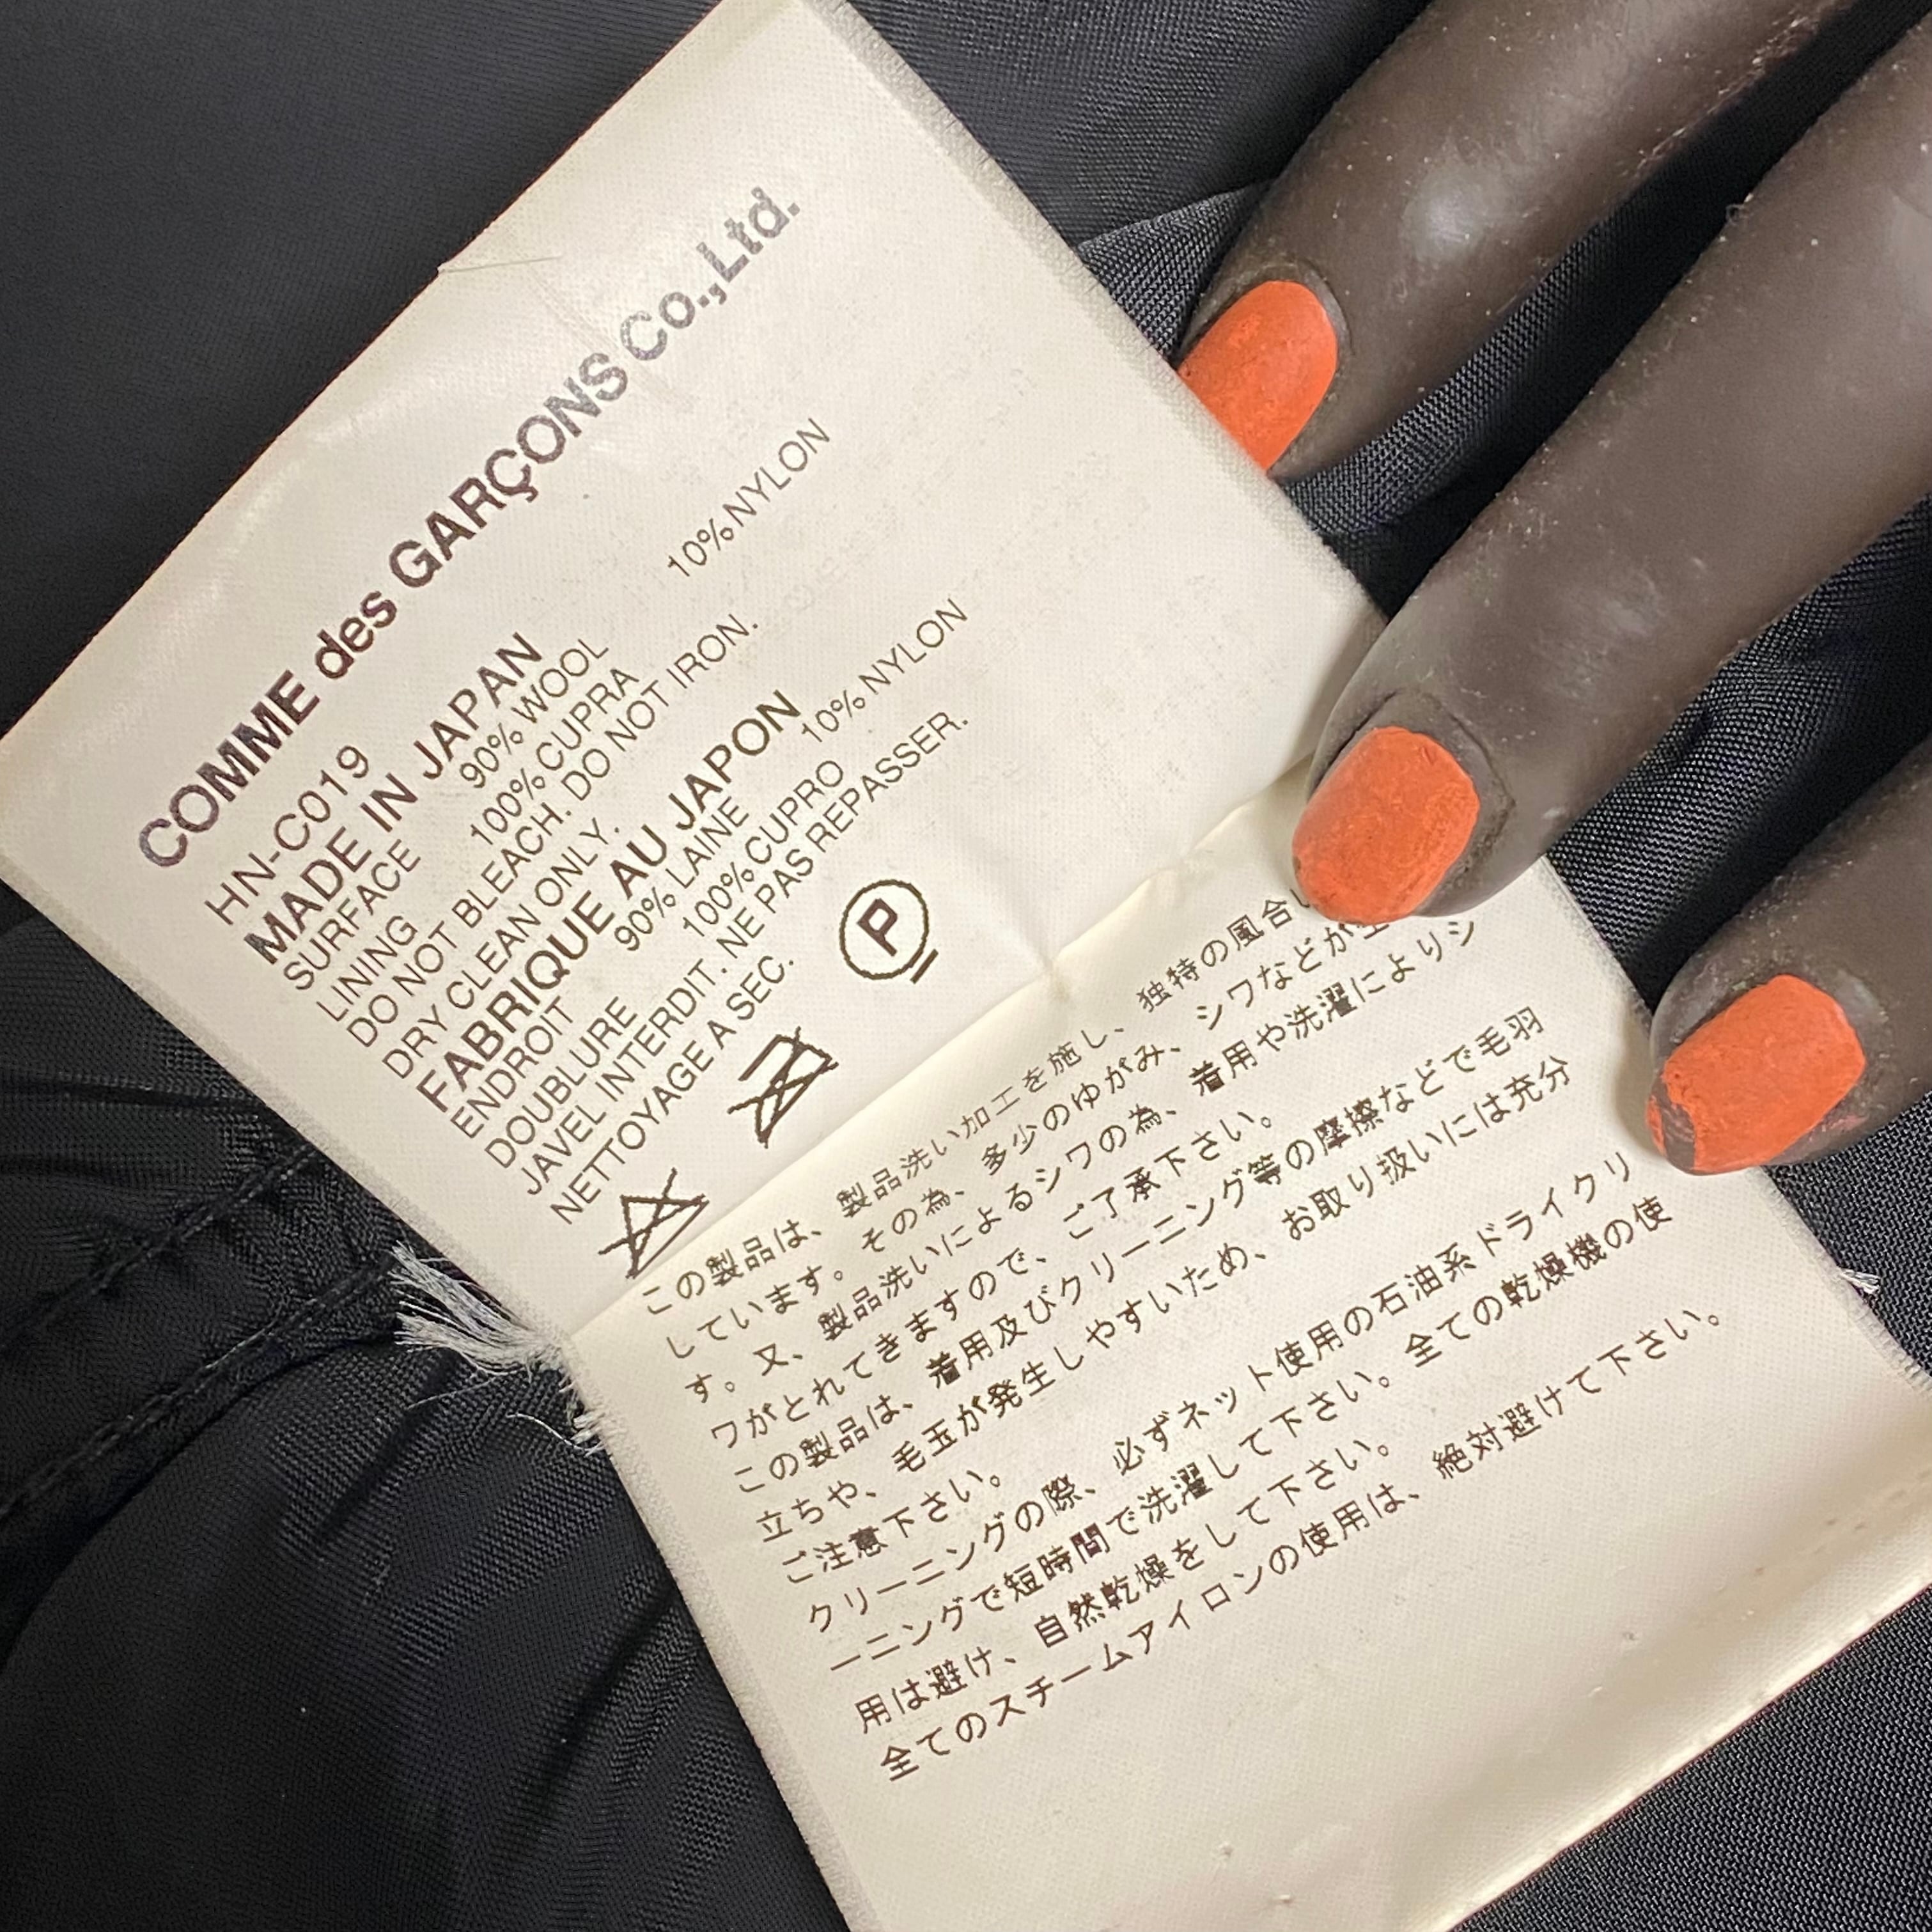 COMME des GARÇONS Co.,Ltd.
HN-C019
MADE IN JAPAN
SURFACE 90% WOOL 10% NYLON
LINING 100% CUPRA
DO NOT BLEACH. DO NOT IRON.
DRY CLEAN ONLY.
FABRIQUE AU JAPON
ENDROIT 90% LAINE 10% NYLON
DOUBLURE 100% CUPRO
JAVEL INTERDIT. NE PAS REPASSER.
NETTOYAGE A SEC.
P
この製品は、製品洗い加工を施し、独特の風合
しています。その為、多少のゆがみ、シワなどが
す。又、製品洗いによるシワの為、着用や洗濯によりシ
ワがとれてきますので、ご了承下さい。
この製品は、着用及びクリーニング等の摩擦などで毛羽
立ちや、毛玉が発生しやすいため、お取り扱いには充分
ご注意下さい。
クリーニングの際、必ずネット使用の石油系ドライクリ
ーニングで短時間で洗濯して下さい。全ての乾燥機の使
用は避け、自然乾燥をして下さい。
全てのスチームアイロンの使用は、絶対避けて下さい。